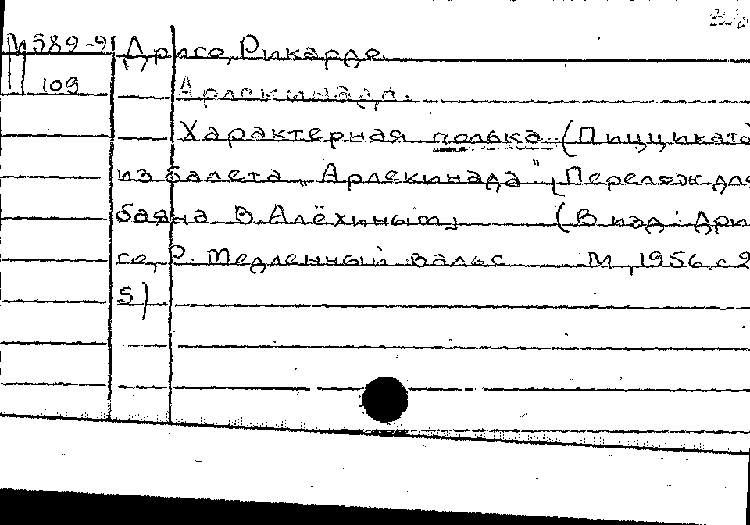 М 589-9 Дриго, Рикардо
109 Арлекинада.
Характерная полька (Пиццикато
из балета „Арлекинада", Перелож для
баяна В. Алёхиным (В изд: Дри
го, Р. Медленный вальс М, 1956. с 2
5)